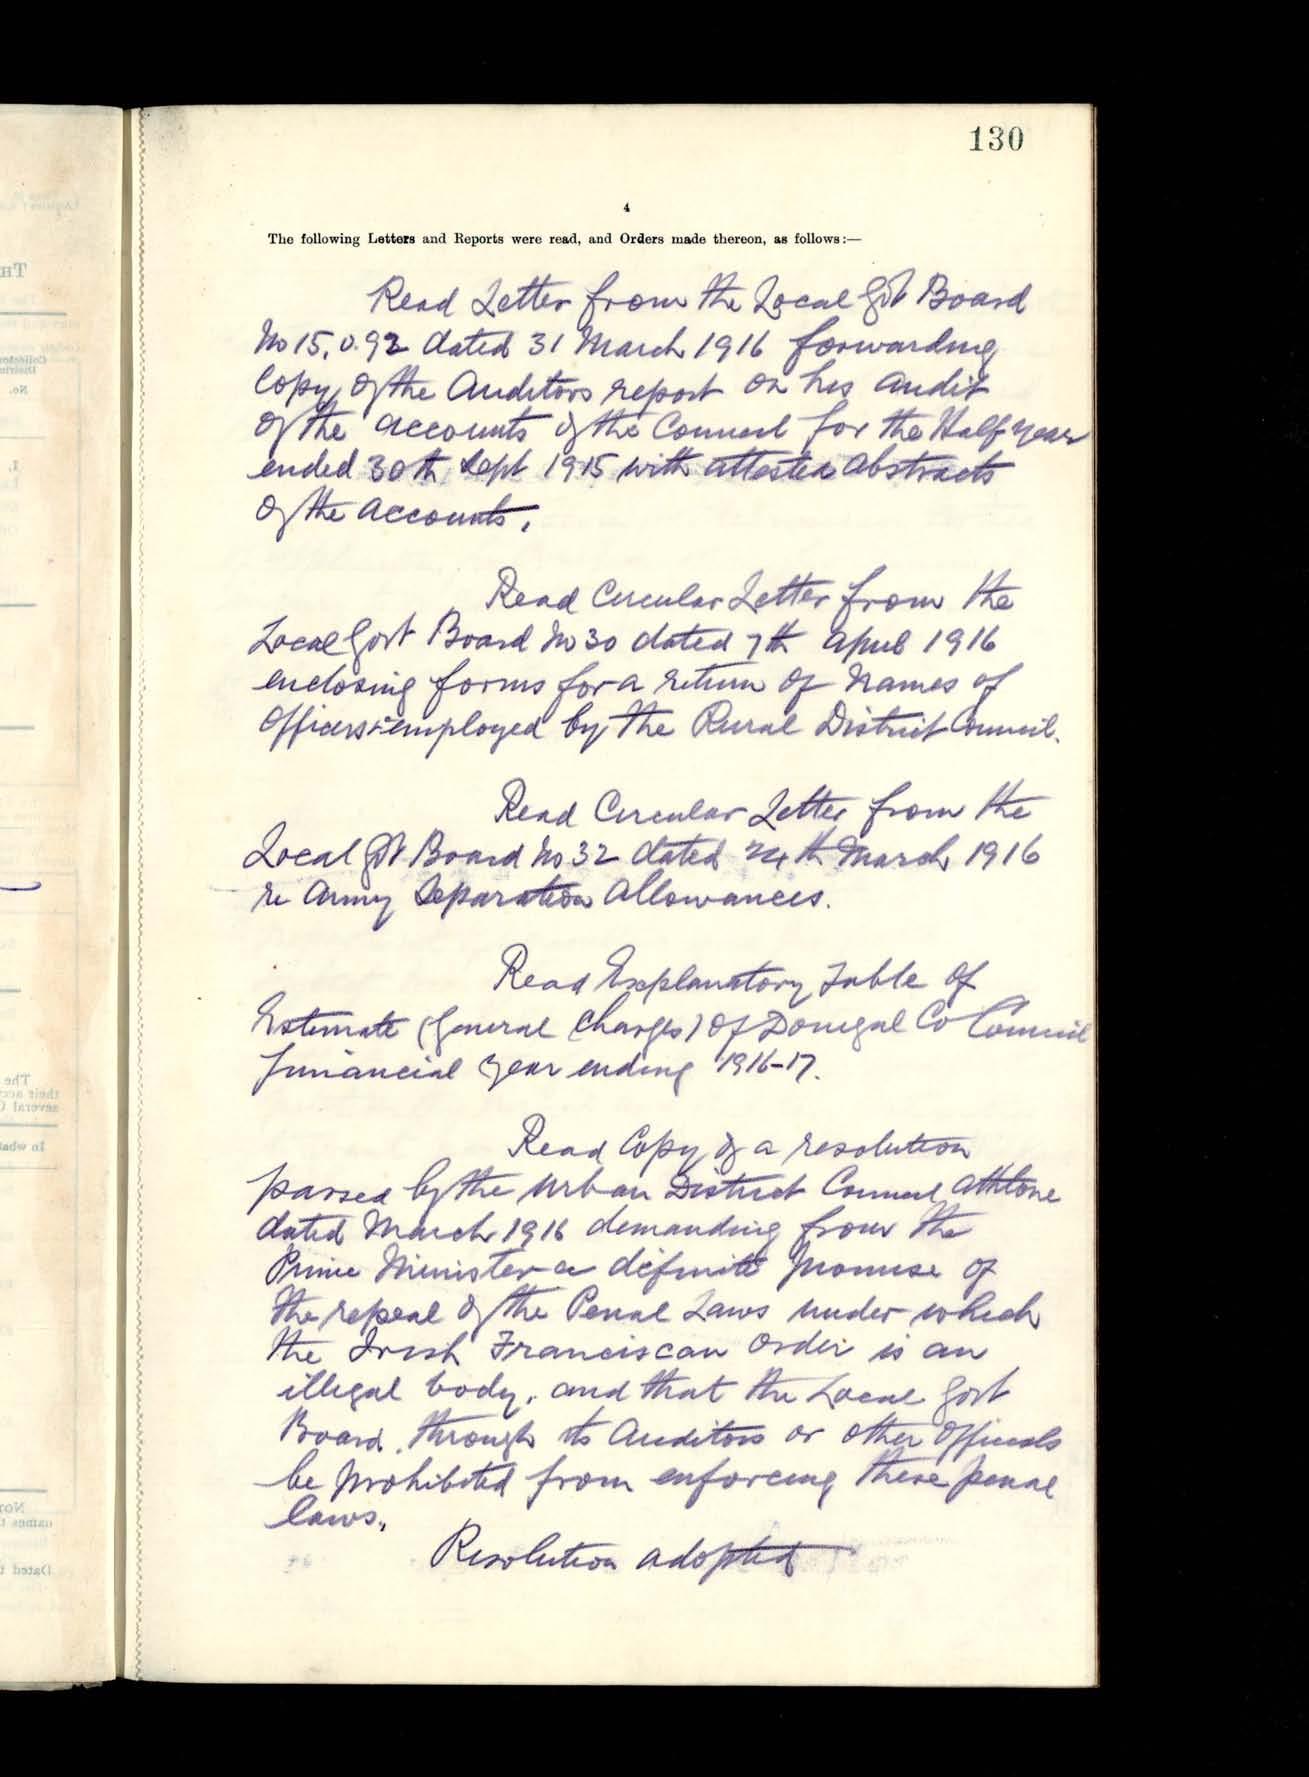 130
4
The following Letters and Reports were read, and Orders made thereon, as follows:—
Read Letter from the Local Govt Board
No 15,092 dated 31 March 1916 forwarding
Copy of the Auditors report on his audit
of the accounts of the Council for the Half-year
ended 30th Sept 1915 with attested Abstracts
of the accounts.
Read Circular Letter from the
Local Govt Board No 30 dated 7th April 1916
enclosing forms for a return of Names of
Officers employed by the Rural District Council.
Read Circular Letter from the
Local Govt Board No 32 dated 24th March 1916
re Army Separation Allowances.
Read Explanatory Table of
Estimate (General Charges) of Donegal Co Council
Financial Year ending 1916-17.
Read Copy of a resolution
passed by the Urban District Council Athlone
dated March 1916 demanding from the
Prime Minister a definite promise of
the repeal of the Penal Laws under which
the Irish Franciscan Order is an
illegal body, and that the Local Govt
Board, through its Auditors or other Officials
be prohibited from enforcing these penal
laws.
Resolution adopted